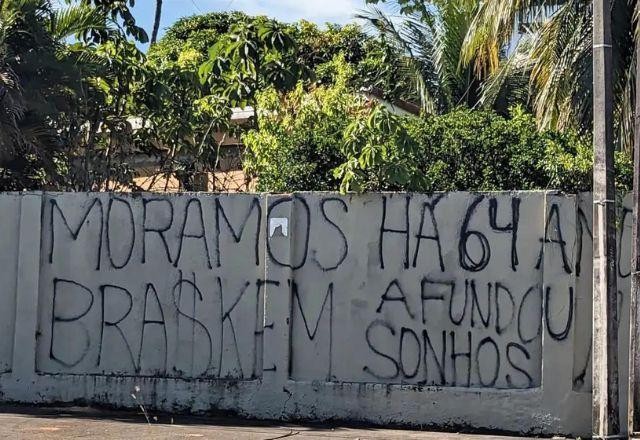 MORAMOS HÁ 64 AN
BRA$KEM AFUNDOU
SONHOS